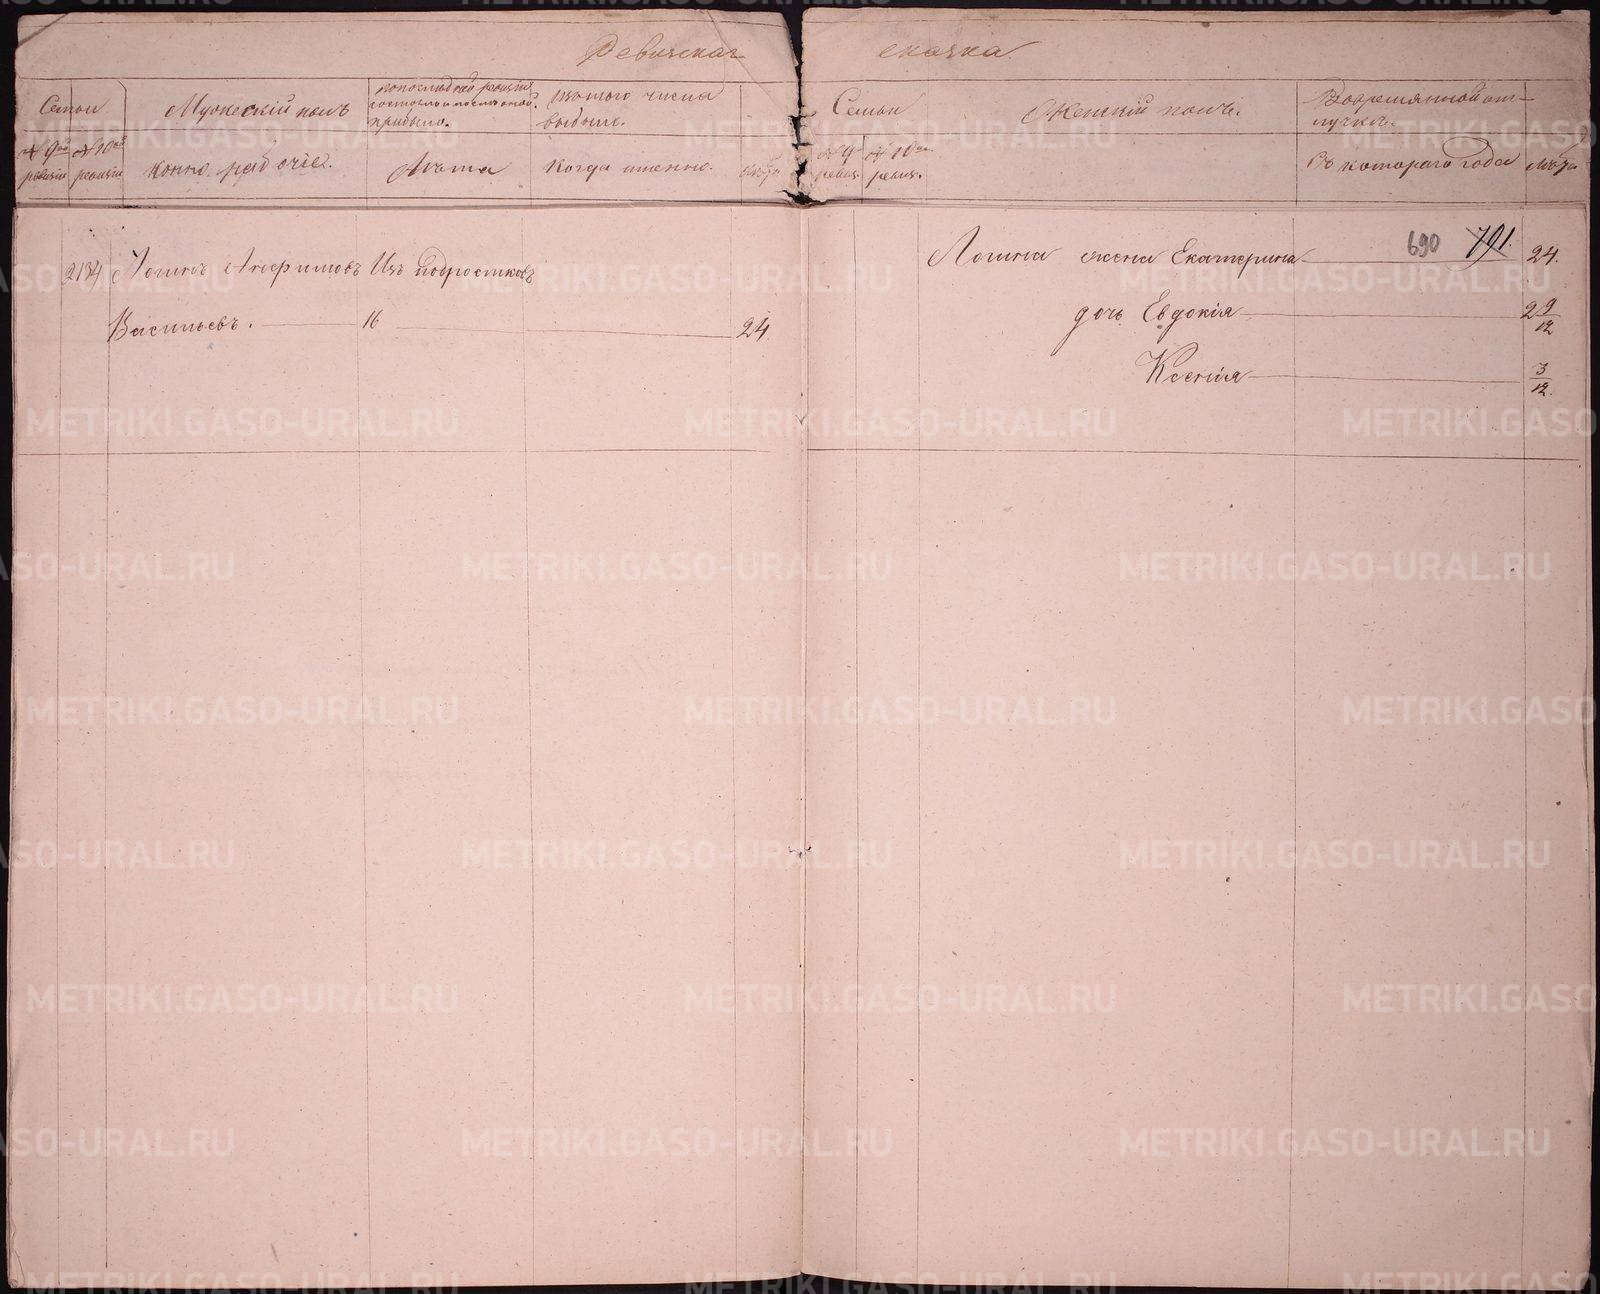 Ревизская сказка
Семьи
Мужескій полъ
по последней ревизіи
состояло и после оной
прибыло.
Изтого числа
выбыло.
Семьи
Женскій полъ.
Вовремянной от-
лучкѣ.
№ 9ой ревизіи
№ 10ой ревизіи
конно рабочіе.
Лѣта
Когда именно.
лѣта
№ 9й ревиз.
№ 10ой ревиз.
Съ котораго года
лѣта
2134 Логинъ Анфимовъ Изъ подростковъ
Васильевъ. 16 24
690 791.
Логина жена Екатерина 24.
дочь Евдокія 2 9/12
Ксенія 3/12.
METRIKI.GASO-URAL.RU